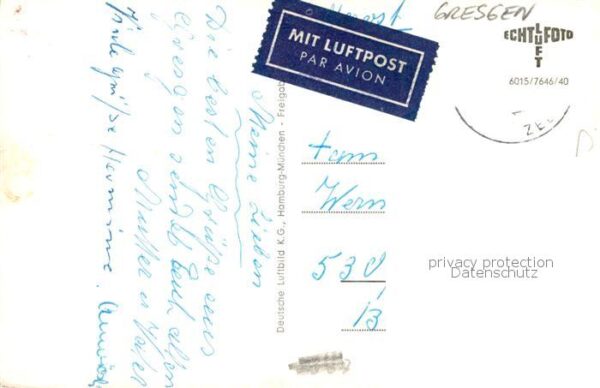 GRESGEN
Luftpost
MIT LUFTPOST
PAR AVION
ECHT FOTO
LUFT
6015/7646/40
ZELL
Meine Lieben
Die besten Grüße aus
Gresgen sendet Euch allen
Mutter u. Vater
Viele Grüße Hermine
Deutsche Luftbild K.G., Hamburg-München - Freigab
Fam
Wern
530
13
privacy protection
Datenschutz